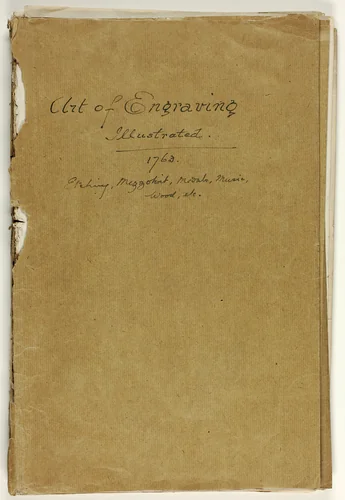 Art of Engraving
Illustrated.
1762.
Etching, Mezzotint, Medals, Music,
Wood, etc.